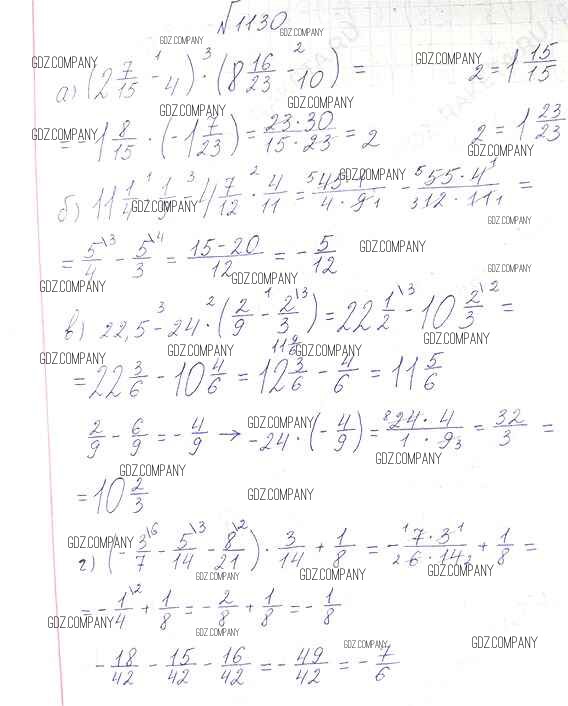 №1130
а) (2 7/15 - 4) · (8 16/23 - 10) = 2 = 1 15/15
= -1 8/15 · (-1 7/23) = 23·30/15·23 = 2 2 = 1 23/23
б) 11 1/4 · 1/9 - 4 7/12 · 4/11 = 45·1/4·9 - 55·4/12·11 =
= 5/4 - 5/3 = 15-20/12 = -5/12
в) 22,5 - 24 · (2/9 - 2/3) = 22 1/2 - 10 2/3 =
= 22 3/6 - 10 4/6 = 12 3/6 - 4/6 = 11 5/6
2/9 - 6/9 = -4/9 → -24 · (-4/9) = 24·4/1·9 = 32/3 =
= 10 2/3
г) (-3/7 - 5/14 - 8/21) · 3/14 + 1/8 = -7·3/6·14 + 1/8 =
= -1/4 + 1/8 = -2/8 + 1/8 = -1/8
-18/42 - 15/42 - 16/42 = -49/42 = -7/6
GDZ.COMPANY